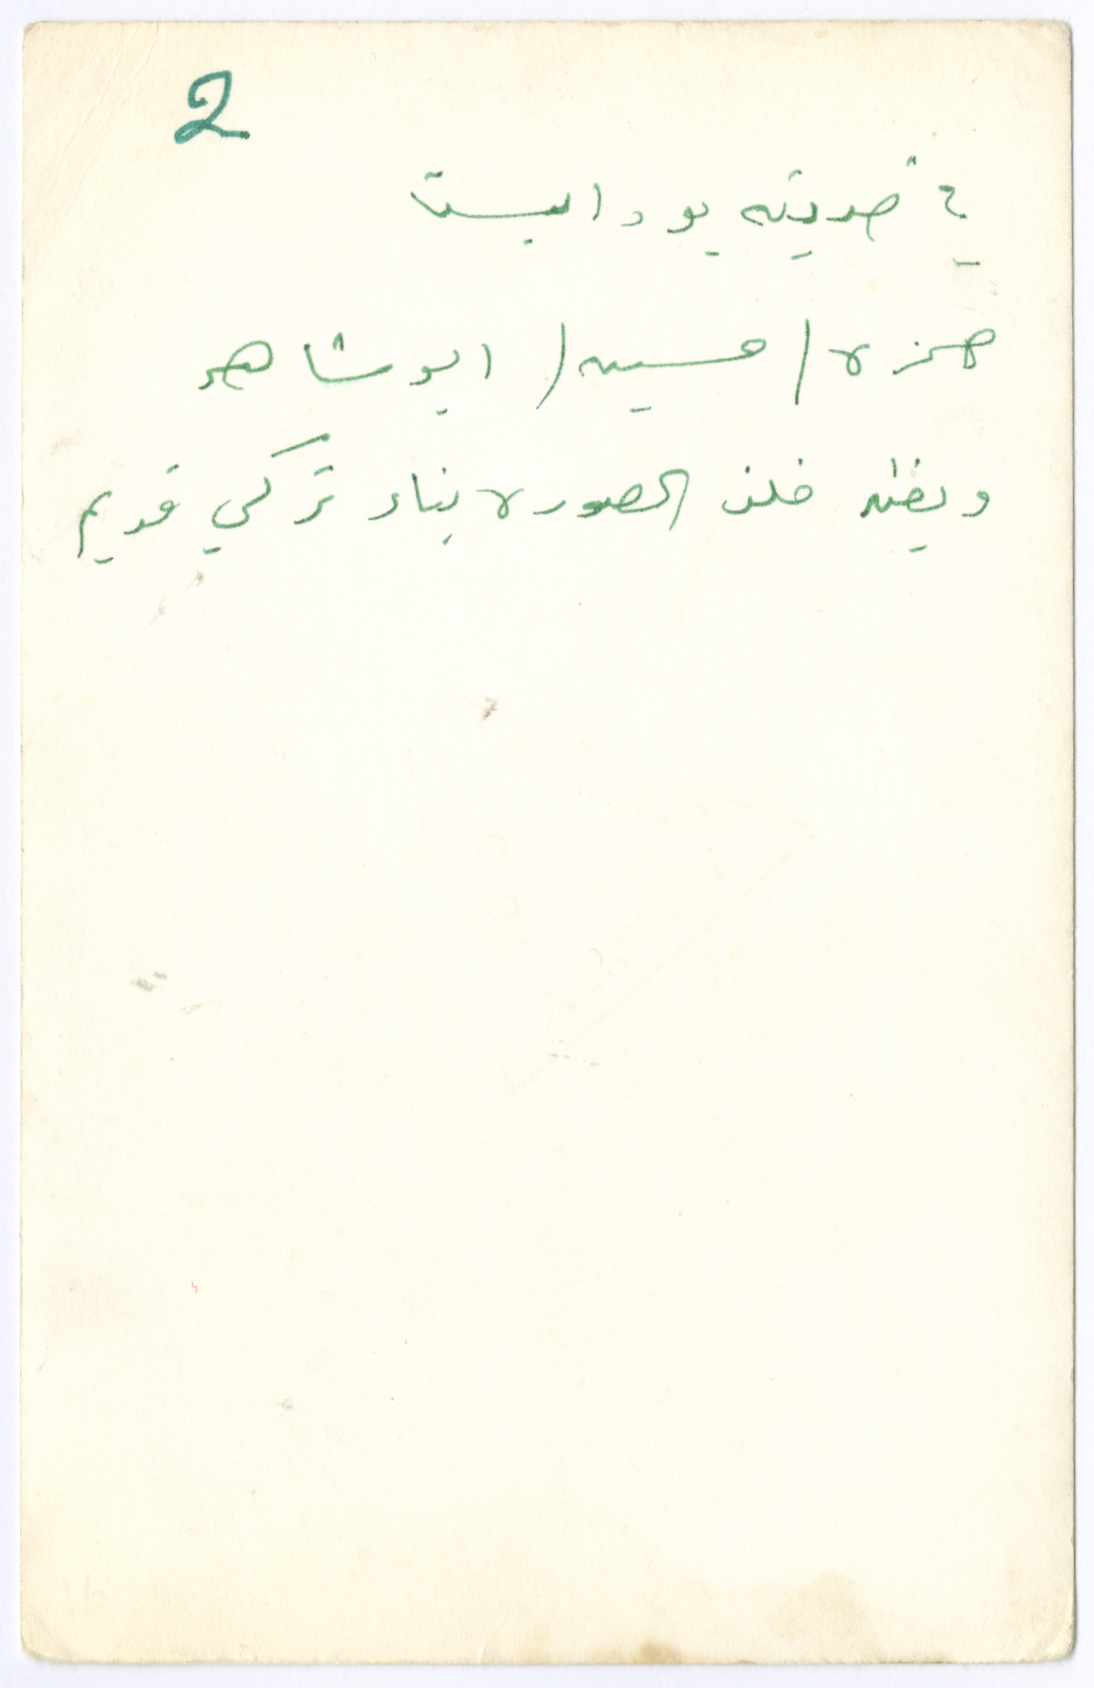 2
في مدينة بودابست
حمزة / حسين / ابو شاهر
ويظهر خلف الصورة بناء تركي قديم